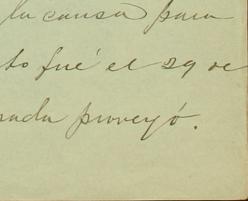 la causa para
to fué el 29 de
nada proveyó.